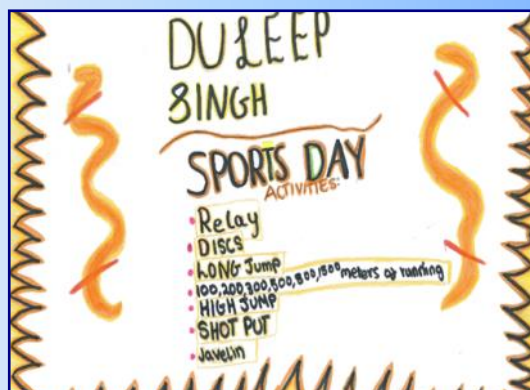 DULEEP
SINGH
SPORTS DAY
ACTIVITIES:
Relay
DISCS
LONG Jump
100,200,300,500,800,1500 meters of running
HIGH JUMP
SHOT PUT
Javelin